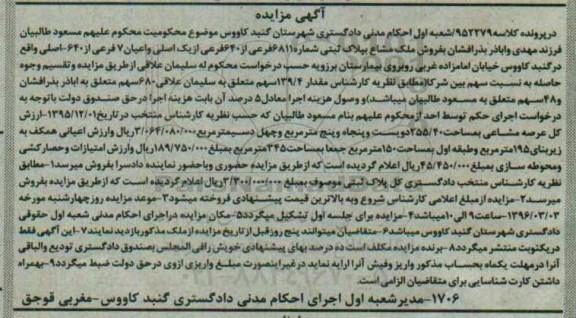 آگهی مزایده
درپرونده کلاسه ۹۵۲۲۷۹/شعبه اول احکام مدنی دادگستری شهرستان گنبد کاووس موضوع محکومیت محکوم علیهم مسعود طالبیان
فرزند مهدی واباذر بذرافشان بفروش ملک مشاع بپلاک ثبتی شماره ۶۸۱۱فرعی از ۶۴۰فرعی ازیک اصلی واعیان ۷ فرعی از ۶۴۰-اصلی واقع
در گنبد کاووس خیابان امامزاده غربی روبروی بیمارستان برزویه حسب درخواست محکوم له سلیمان علاقی ازطریق مزایده وتقسیم وجوه
حاصله به نسبت سهم بین شرکا مطابق نظریه کارشناس مقدار ۱۳۹/۴سهم متعلق به سلیمان علاقی ۶۸۰سهم متعلق به اباذر بذرافشان
و۴۸سهم متعلق به مسعود طالبیان میباشد)و وصول هزینه اجرا معادل۵ درصد آن بابت هزینه اجرا درحق صندوق دولت باتوجه به
درخواست اجرای حکم توسط احد ازمحکوم علیهم بنام مسعود طالبیان که حسب نظریه کارشناس منتخب در تاریخ۱۳۹۵/۱۲/۰۱-ارزش
کل عرصه مشاعی بمساحت۲۵۵/۴۰دویست وپنجاه وپنج مترمربع وچهل دسیمترمربع۳/۰۶۴/۰۸۰/۰۰۰ریال وارزش اعیانی همکف به
زیربنای۱۹۵مترمربع وطبقه اول بمساحت۱۵۰مترمربع جمعا بمساحت۳۴۵مترمربع بمبلغ۱۸۹/۷۵۰/۰۰۰ریال وارزش امتیازات وحصارکشی
ومحوطه سازی بمبلغ۴۵/۴۵۰/۰۰۰ریال اعلام گردیده است که ازطریق مزایده حضوری وباحضور نماینده دادسرا بفروش میرسد۱-مطابق
نظریه کارشناس منتخب دادگستری کل پلاک ثبتی موصوف بمبلغ ریال اعلام گردیده است که ازطریق مزایده بفروش
میرسد۲-مزایده ازمبلغ اعلامی کارشناس شروع وبه بالاترین قیمت پیشنهادی فروخته میشود۳-موعد مزایده روزچهارشنبه مورخه
۱۳۹۶/۰۳/۰۳-ساعت۹ الی۱۰میباشد۴-مزایده برای جلسه اول تشکیل میگردد۵-مکان مزایده دراجرای احکام مدنی شعبه اول حقوقی
دادگستری شهرستان گنبد کاووس میباشد۶-متقاضیان میتوانند پنج روزقبل از تاریخ مزایده ازملک مذکوربازدیدنمایند۷-این آگهی فقط
دریکنوبت منتشر میگردد۸-برنده مزایده مکلف است ده درصد بهای پیشنهادی خویش رافی المجلس بصندوق دادگستری تودیع والباقی
آنرا درمهلت یکماه بحساب مذکور واریز وفیش آنرا ارایه نماید درغیراینصورت مبلغ واریزی ازوی درحق دولت ضبط میگردد۹-بهمراه
داشتن کارت شناسایی برای متقاضیان الزامی است.
۱۷۰۶-مدیرشعبه اول اجرای احکام مدنی دادگستری گنبد کاووس-مغربی قوجق